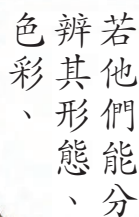 若他們能分
辨其形態、
色彩、